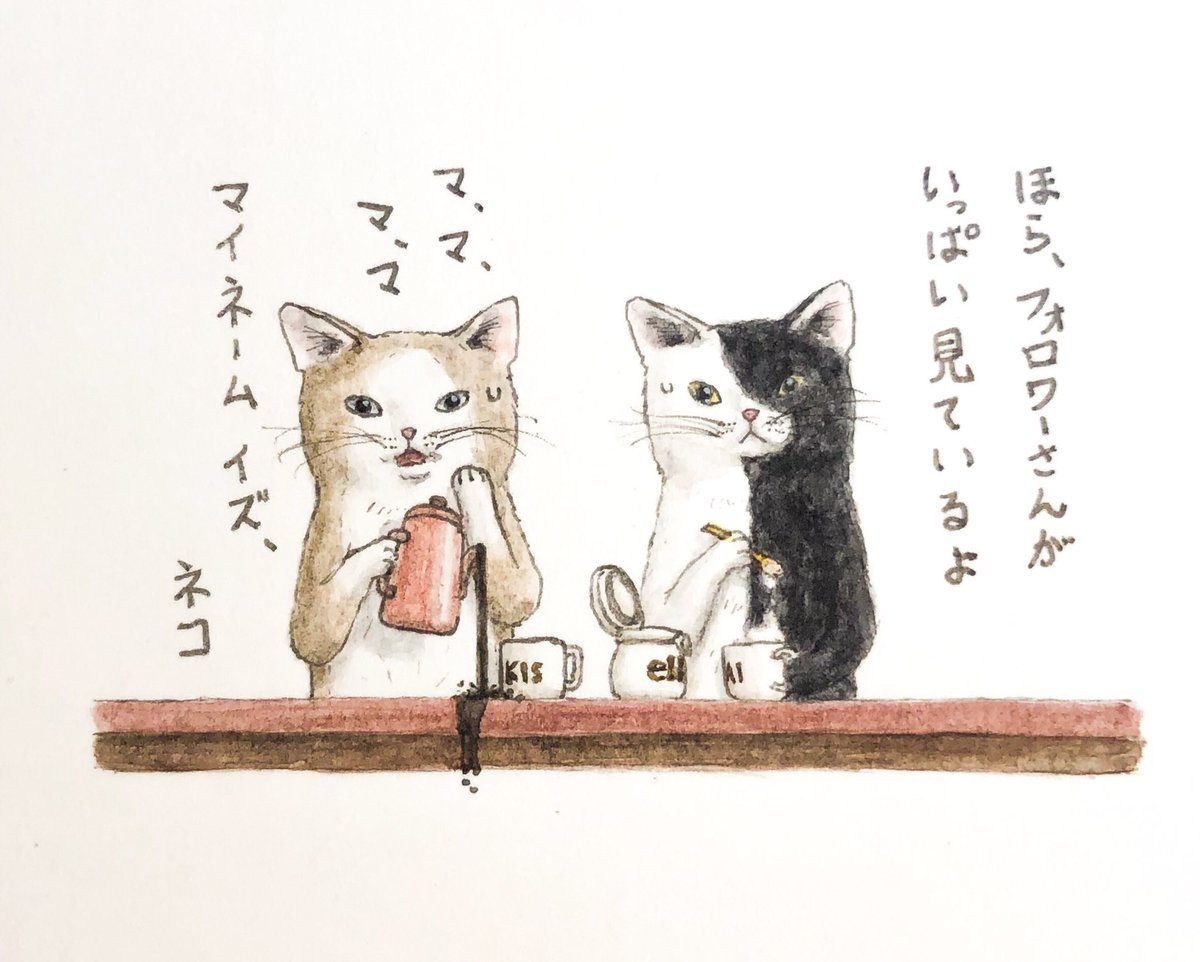 ほら、フォロワーさんが
いっぱい見ているよ
マ、マ、
マ、マ
マイネーム イズ、
ネコ
KIS
ell